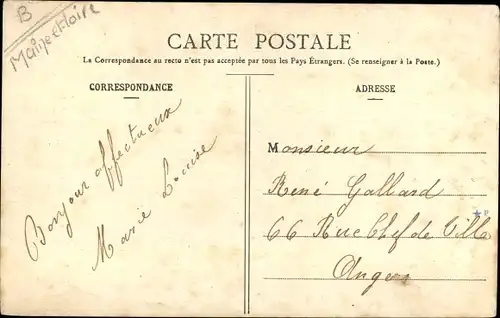 B
Maine et Loire
CARTE POSTALE
La Correspondance au recto n'est pas acceptée par tous les Pays Étrangers. (Se renseigner à la Poste.)
CORRESPONDANCE
Bonjour affectueux
Marie Louise
ADRESSE
Monsieur
René Gallard
66 Rue Chef de Ville
Angers